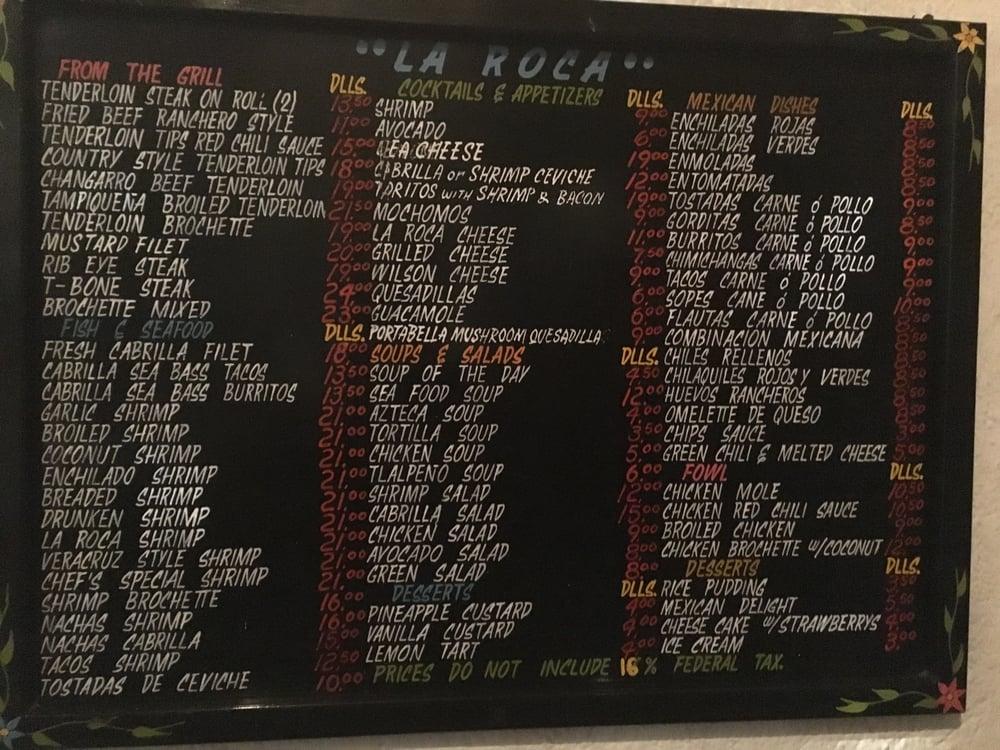 "LA ROCA"
FROM THE GRILL DLLS.
TENDERLOIN STEAK ON ROLL (2) 13.50
FRIED BEEF RANCHERO STYLE
TENDERLOIN TIPS RED CHILI SAUCE 15.00
COUNTRY STYLE TENDERLOIN TIPS 18.00
CHANGARRO BEEF TENDERLOIN 19.00
TAMPIQUEÑA BROILED TENDERLOIN 21.50
TENDERLOIN BROCHETTE 19.00
MUSTARD FILET 20.00
RIB EYE STEAK 19.00
T-BONE STEAK 24.00
BROCHETTE MIXED 23.00
FISH & SEAFOOD DLLS.
FRESH CABRILLA FILET 18.00
CABRILLA SEA BASS TACOS 13.50
CABRILLA SEA BASS BURRITOS 13.50
GARLIC SHRIMP 21.00
BROILED SHRIMP 21.00
COCONUT SHRIMP 21.00
ENCHILADO SHRIMP 21.00
BREADED SHRIMP 21.00
DRUNKEN SHRIMP 21.00
LA ROCA SHRIMP 21.00
VERACRUZ STYLE SHRIMP 21.00
CHEF'S SPECIAL SHRIMP 21.00
SHRIMP BROCHETTE 16.00
NACHAS SHRIMP 16.00
NACHAS CABRILLA 15.00
TACOS SHRIMP 12.50
TOSTADAS DE CEVICHE 10.00
COCKTAILS & APPETIZERS DLLS.
SHRIMP 9.00
AVOCADO 6.00
CHEESE 19.00
CABRILLA or SHRIMP CEVICHE 12.00
TORITOS WITH SHRIMP & BACON 19.00
MOCHOMOS 9.00
LA ROCA CHEESE 11.00
GRILLED CHEESE 7.50
WILSON CHEESE 9.00
QUESADILLAS 6.00
GUACAMOLE 6.00
PORTABELLA MUSHROOM QUESADILLA 9.00
SOUPS & SALADS DLLS.
SOUP OF THE DAY 4.50
SEA FOOD SOUP 12.00
AZTECA SOUP 4.00
TORTILLA SOUP 3.50
CHICKEN SOUP 5.00
TLALPEÑO SOUP 6.00
SHRIMP SALAD 12.00
CABRILLA SALAD 15.00
CHICKEN SALAD 9.00
AVOCADO SALAD 8.00
GREEN SALAD 8.00
DESSERTS DLLS.
PINEAPPLE CUSTARD 4.00
VANILLA CUSTARD 4.00
LEMON TART 4.00
MEXICAN DISHES DLLS.
ENCHILADAS ROJAS 8.50
ENCHILADAS VERDES
ENMOLADAS
ENTOMATADAS
TOSTADAS CARNE ó POLLO
GORDITAS CARNE ó POLLO
BURRITOS CARNE ó POLLO
CHIMICHANGAS CARNE ó POLLO
TACOS CARNE ó POLLO
SOPES CANE ó POLLO
FLAUTAS CARNE ó POLLO
COMBINACION MEXICANA
CHILES RELLENOS
CHILAQUILES ROJOS Y VERDES
HUEVOS RANCHEROS
OMELETTE DE QUESO
CHIPS SAUCE
GREEN CHILI & MELTED CHEESE 5.00
FOWL DLLS.
CHICKEN MOLE 10.50
CHICKEN RED CHILI SAUCE 10.50
BROILED CHICKEN 9.00
CHICKEN BROCHETTE W/COCONUT 12.00
DESSERTS DLLS.
RICE PUDDING 3.50
MEXICAN DELIGHT 5.50
CHEESE CAKE W/STRAWBERRYS 4.00
ICE CREAM 3.00
PRICES DO NOT INCLUDE 16% FEDERAL TAX.